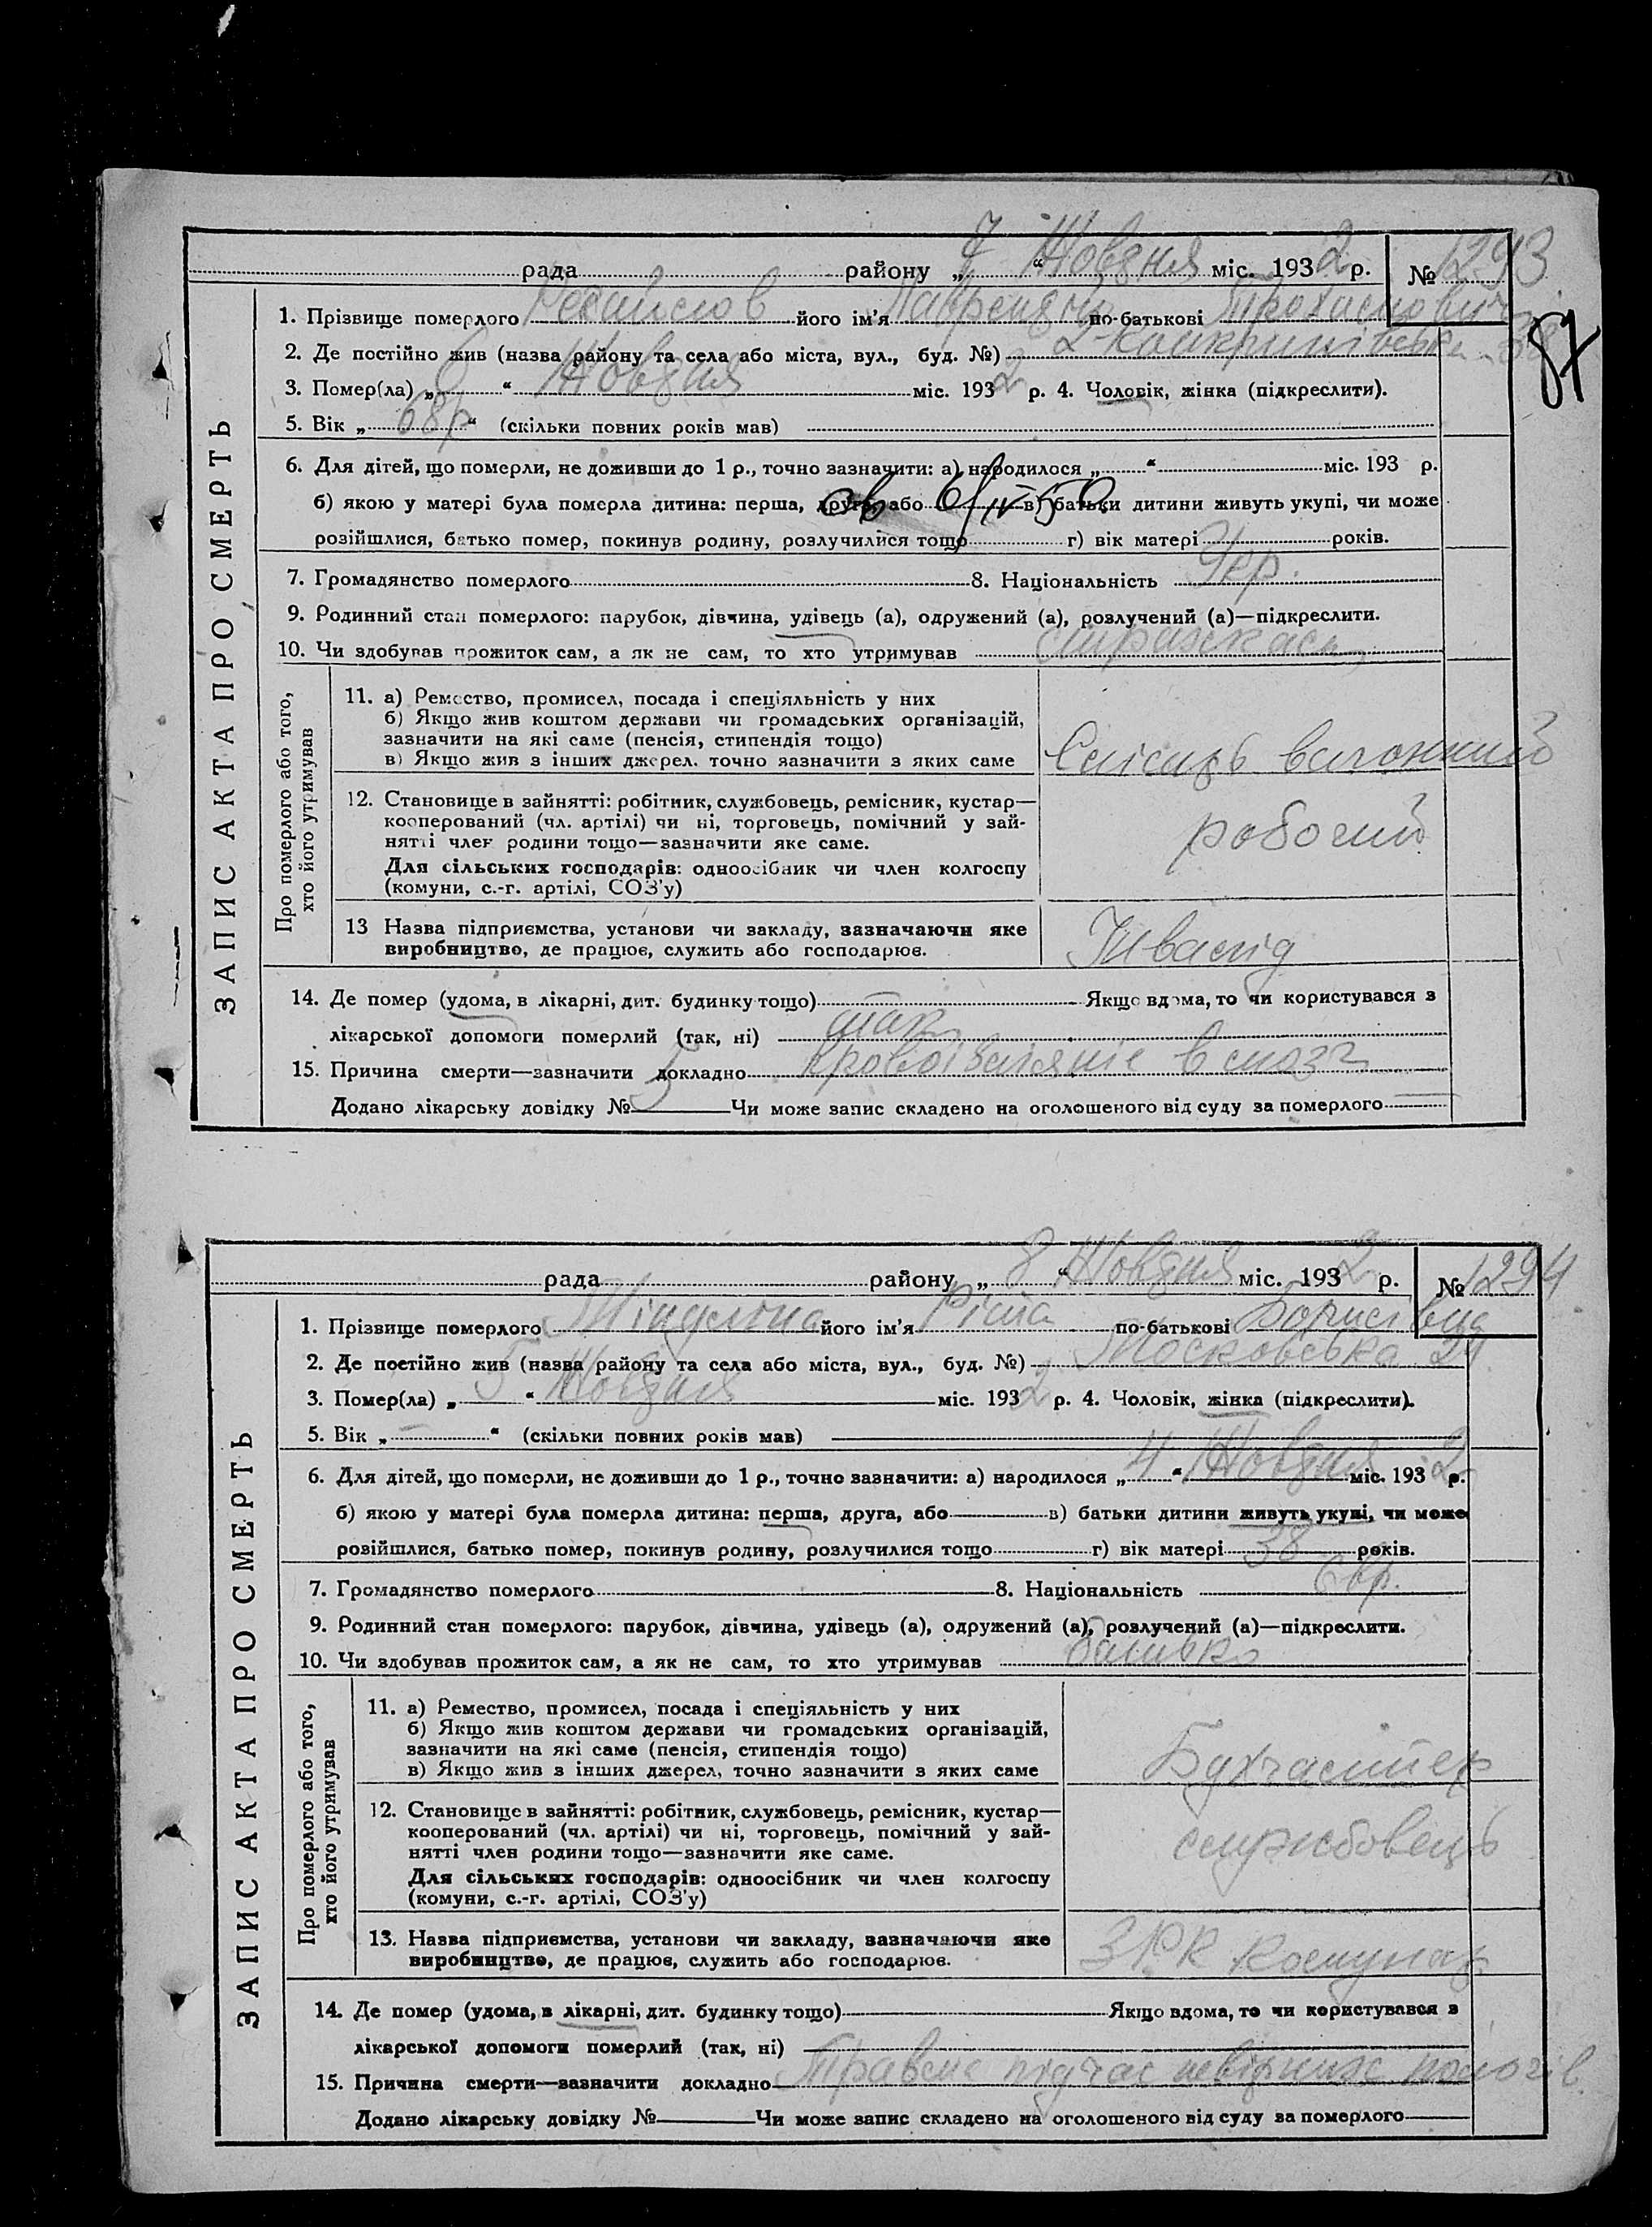 рада району „ 7 “ Жовтня міс. 193 2 р. № 1293
87
1. Прізвище померлого його ім'я по-батькові
2. Де постійно жив (назва району та села або міста, вул., буд. №) 38
3. Помер(ла) „ 6 “ Жовтня міс. 193 2 р. 4. Чоловік, жінка (підкреслити).
5. Вік „ 68 р “ (скільки повних років мав)
6. Для дітей, що померли, не доживши до 1 р., точно зазначити: а) народилося „ “ міс. 193 р.
б) якою у матері була померла дитина: перша, друга, або в) батьки дитини живуть укупі, чи може
розійшлися, батько помер, покинув родину, розлучилися тощо г) вік матері років.
7. Громадянство померлого 8. Національність Укр.
9. Родинний стан померлого: парубок, дівчина, удівець (а), одружений (а), розлучений (а)—підкреслити.
10. Чи здобував прожиток сам, а як не сам, то хто утримував страхкаса
ЗАПИС АКТА ПРО СМЕРТЬ
Про померлого або того,
хто його утримував
11. а) Ремество, промисел, посада і спеціяльність у них
б) Якщо жив коштом держави чи громадських організацій,
зазначити на які саме (пенсія, стипендія тощо)
в) Якщо жив з інших джерел. точно зазначити з яких саме
вагонний
12. Становище в зайнятті: робітник, службовець, ремісник, кустар—
кооперований (чл. артілі) чи ні, торговець, помічний у зай-
нятті член родини тощо—зазначити яке саме.
Для сільських господарів: одноосібник чи член колгоспу
(комуни, с.-г. артілі, СОЗ'у)
робочий
13 Назва підприємства, установи чи закладу, зазначаючи яке
виробництво, де працює, служить або господарює.
Інвалід
14. Де помер (удома, в лікарні, дит. будинку тощо) Якщо вдома, то чи користувався з
лікарської допомоги померлий (так, ні) так
15. Причина смерти—зазначити докладно в мозг
Додано лікарську довідку № 5 Чи може запис складено на оголошеного від суду за померлого
рада району „ 8 “ Жовтня міс. 193 2 р. № 1294
1. Прізвище померлого його ім'я Ріта по-батькові Борисівна
2. Де постійно жив (назва району та села або міста, вул., буд. №) Московська 24
3. Помер(ла) „ 5 “ Жовтня міс. 193 2 р. 4. Чоловік, жінка (підкреслити).
5. Вік „ — “ (скільки повних років мав)
6. Для дітей, що померли, не доживши до 1 р., точно зазначити: а) народилося „ 4 “ Жовтня міс. 193 2 р.
б) якою у матері була померла дитина: перша, друга, або в) батьки дитини живуть укупі, чи може
розійшлися, батько помер, покинув родину, розлучилися тощо г) вік матері 38 років.
7. Громадянство померлого 8. Національність Євр.
9. Родинний стан померлого: парубок, дівчина, удівець (а), одружений (а), розлучений (а)—підкреслити.
10. Чи здобував прожиток сам, а як не сам, то хто утримував батько
ЗАПИС АКТА ПРО СМЕРТЬ
Про померлого або того,
хто його утримував
11. а) Ремество, промисел, посада і спеціяльність у них
б) Якщо жив коштом держави чи громадських організацій,
зазначити на які саме (пенсія, стипендія тощо)
в) Якщо жив з інших джерел, точно зазначити з яких саме
Бухгалтер
12. Становище в зайнятті: робітник, службовець, ремісник, кустар—
кооперований (чл. артілі) чи ні, торговець, помічний у зай-
нятті член родини тощо—зазначити яке саме.
Для сільських господарів: одноосібник чи член колгоспу
(комуни, с.-г. артілі, СОЗ'у)
службовець
13. Назва підприємства, установи чи закладу, зазначаючи яке
виробництво, де працює, служить або господарює.
ЗРК Комунар
14. Де помер (удома, в лікарні, дит. будинку тощо) Якщо вдома, то чи користувався з
лікарської допомоги померлий (так, ні)
15. Причина смерти—зазначити докладно Травма підчас невірних пологів.
Додано лікарську довідку № Чи може запис складено на оголошеного від суду за померлого